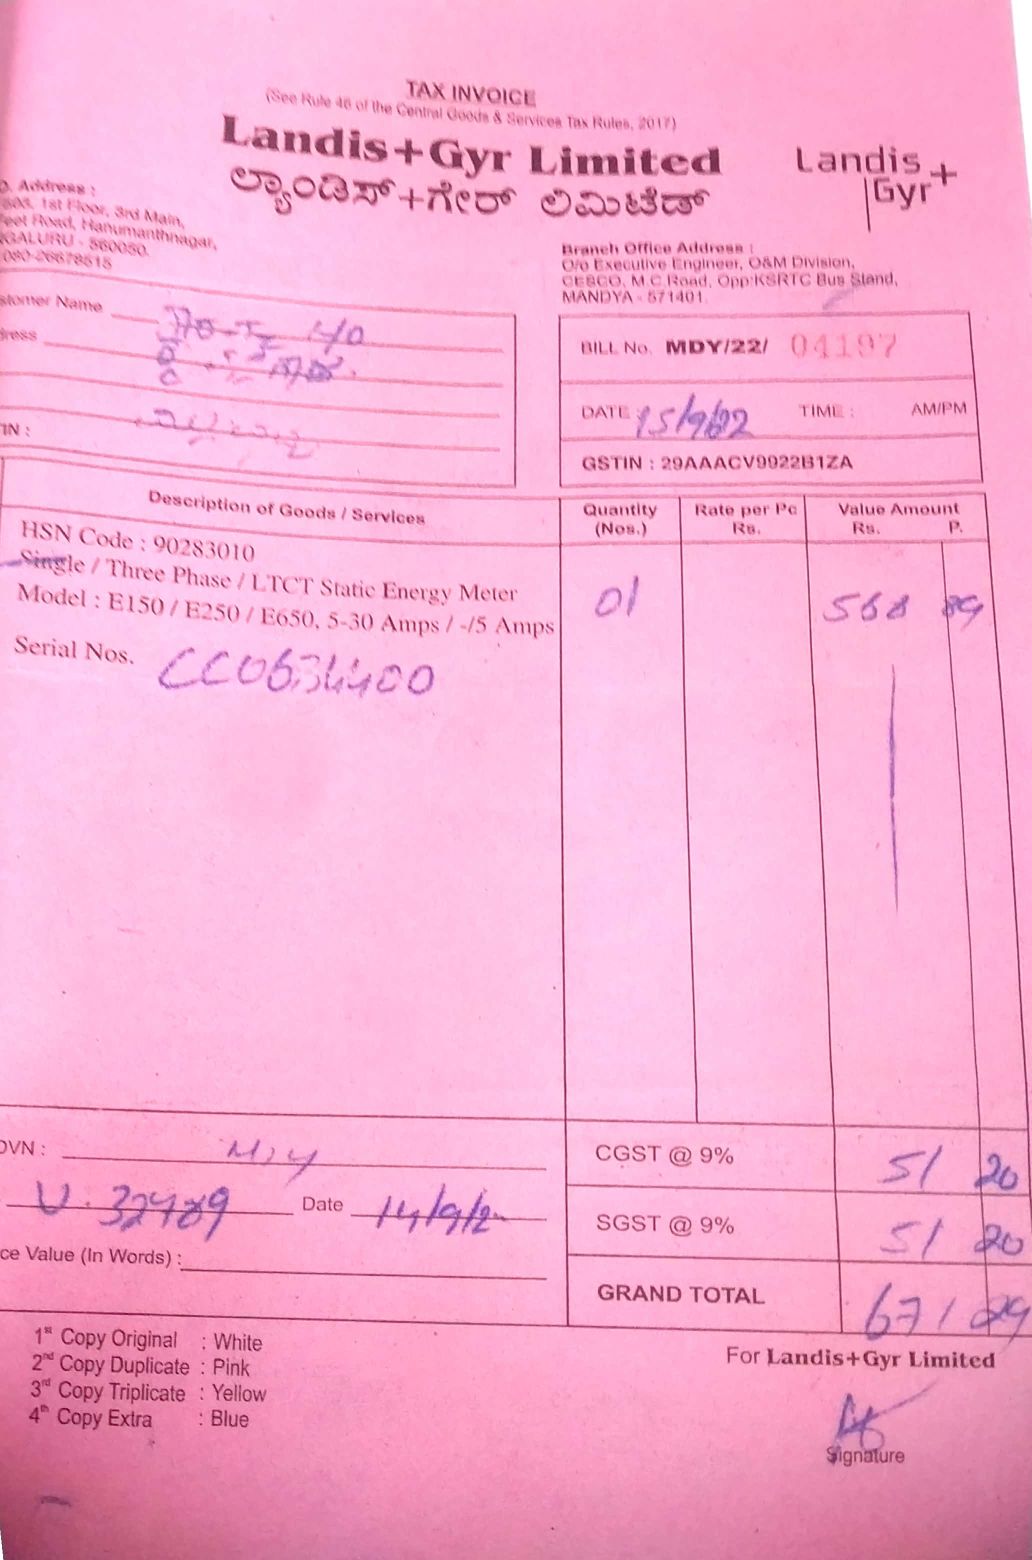 TAX INVOICE
(See Rule 46 of the Central Goods & Services Tax Rules, 2017)
Landis+Gyr Limited
ಲ್ಯಾಂಡಿಸ್+ಗೇರ್ ಲಿಮಿಟೆಡ್
Landis+
Gyr
Address :
1st Floor, 3rd Main,
Road, Hanumanthnagar,
GALURU - 560050.
080-26678515
Branch Office Address :
O/o Executive Engineer, O&M Division,
CESCO, M.C.Road, Opp:KSRTC Bus Stand,
MANDYA - 571401.
stomer Name
ress
IN :
BILL No. MDY/22/ 04197
DATE 15/9/22 TIME : AM/PM
GSTIN : 29AAACV9922B1ZA
Description of Goods / Services
Quantity (Nos.)
Rate per Pc Rs.
Value Amount Rs. P.
HSN Code : 90283010
Single / Three Phase / LTCT Static Energy Meter
Model : E150 / E250 / E650, 5-30 Amps / -/5 Amps
01 568 89
Serial Nos. CC0634400
OVN :
CGST @ 9% 51 20
U. 32789 Date 14/9/2
SGST @ 9% 51 20
ce Value (In Words) :
GRAND TOTAL 671 29
1st Copy Original : White
2nd Copy Duplicate : Pink
3rd Copy Triplicate : Yellow
4th Copy Extra : Blue
For Landis+Gyr Limited
Signature